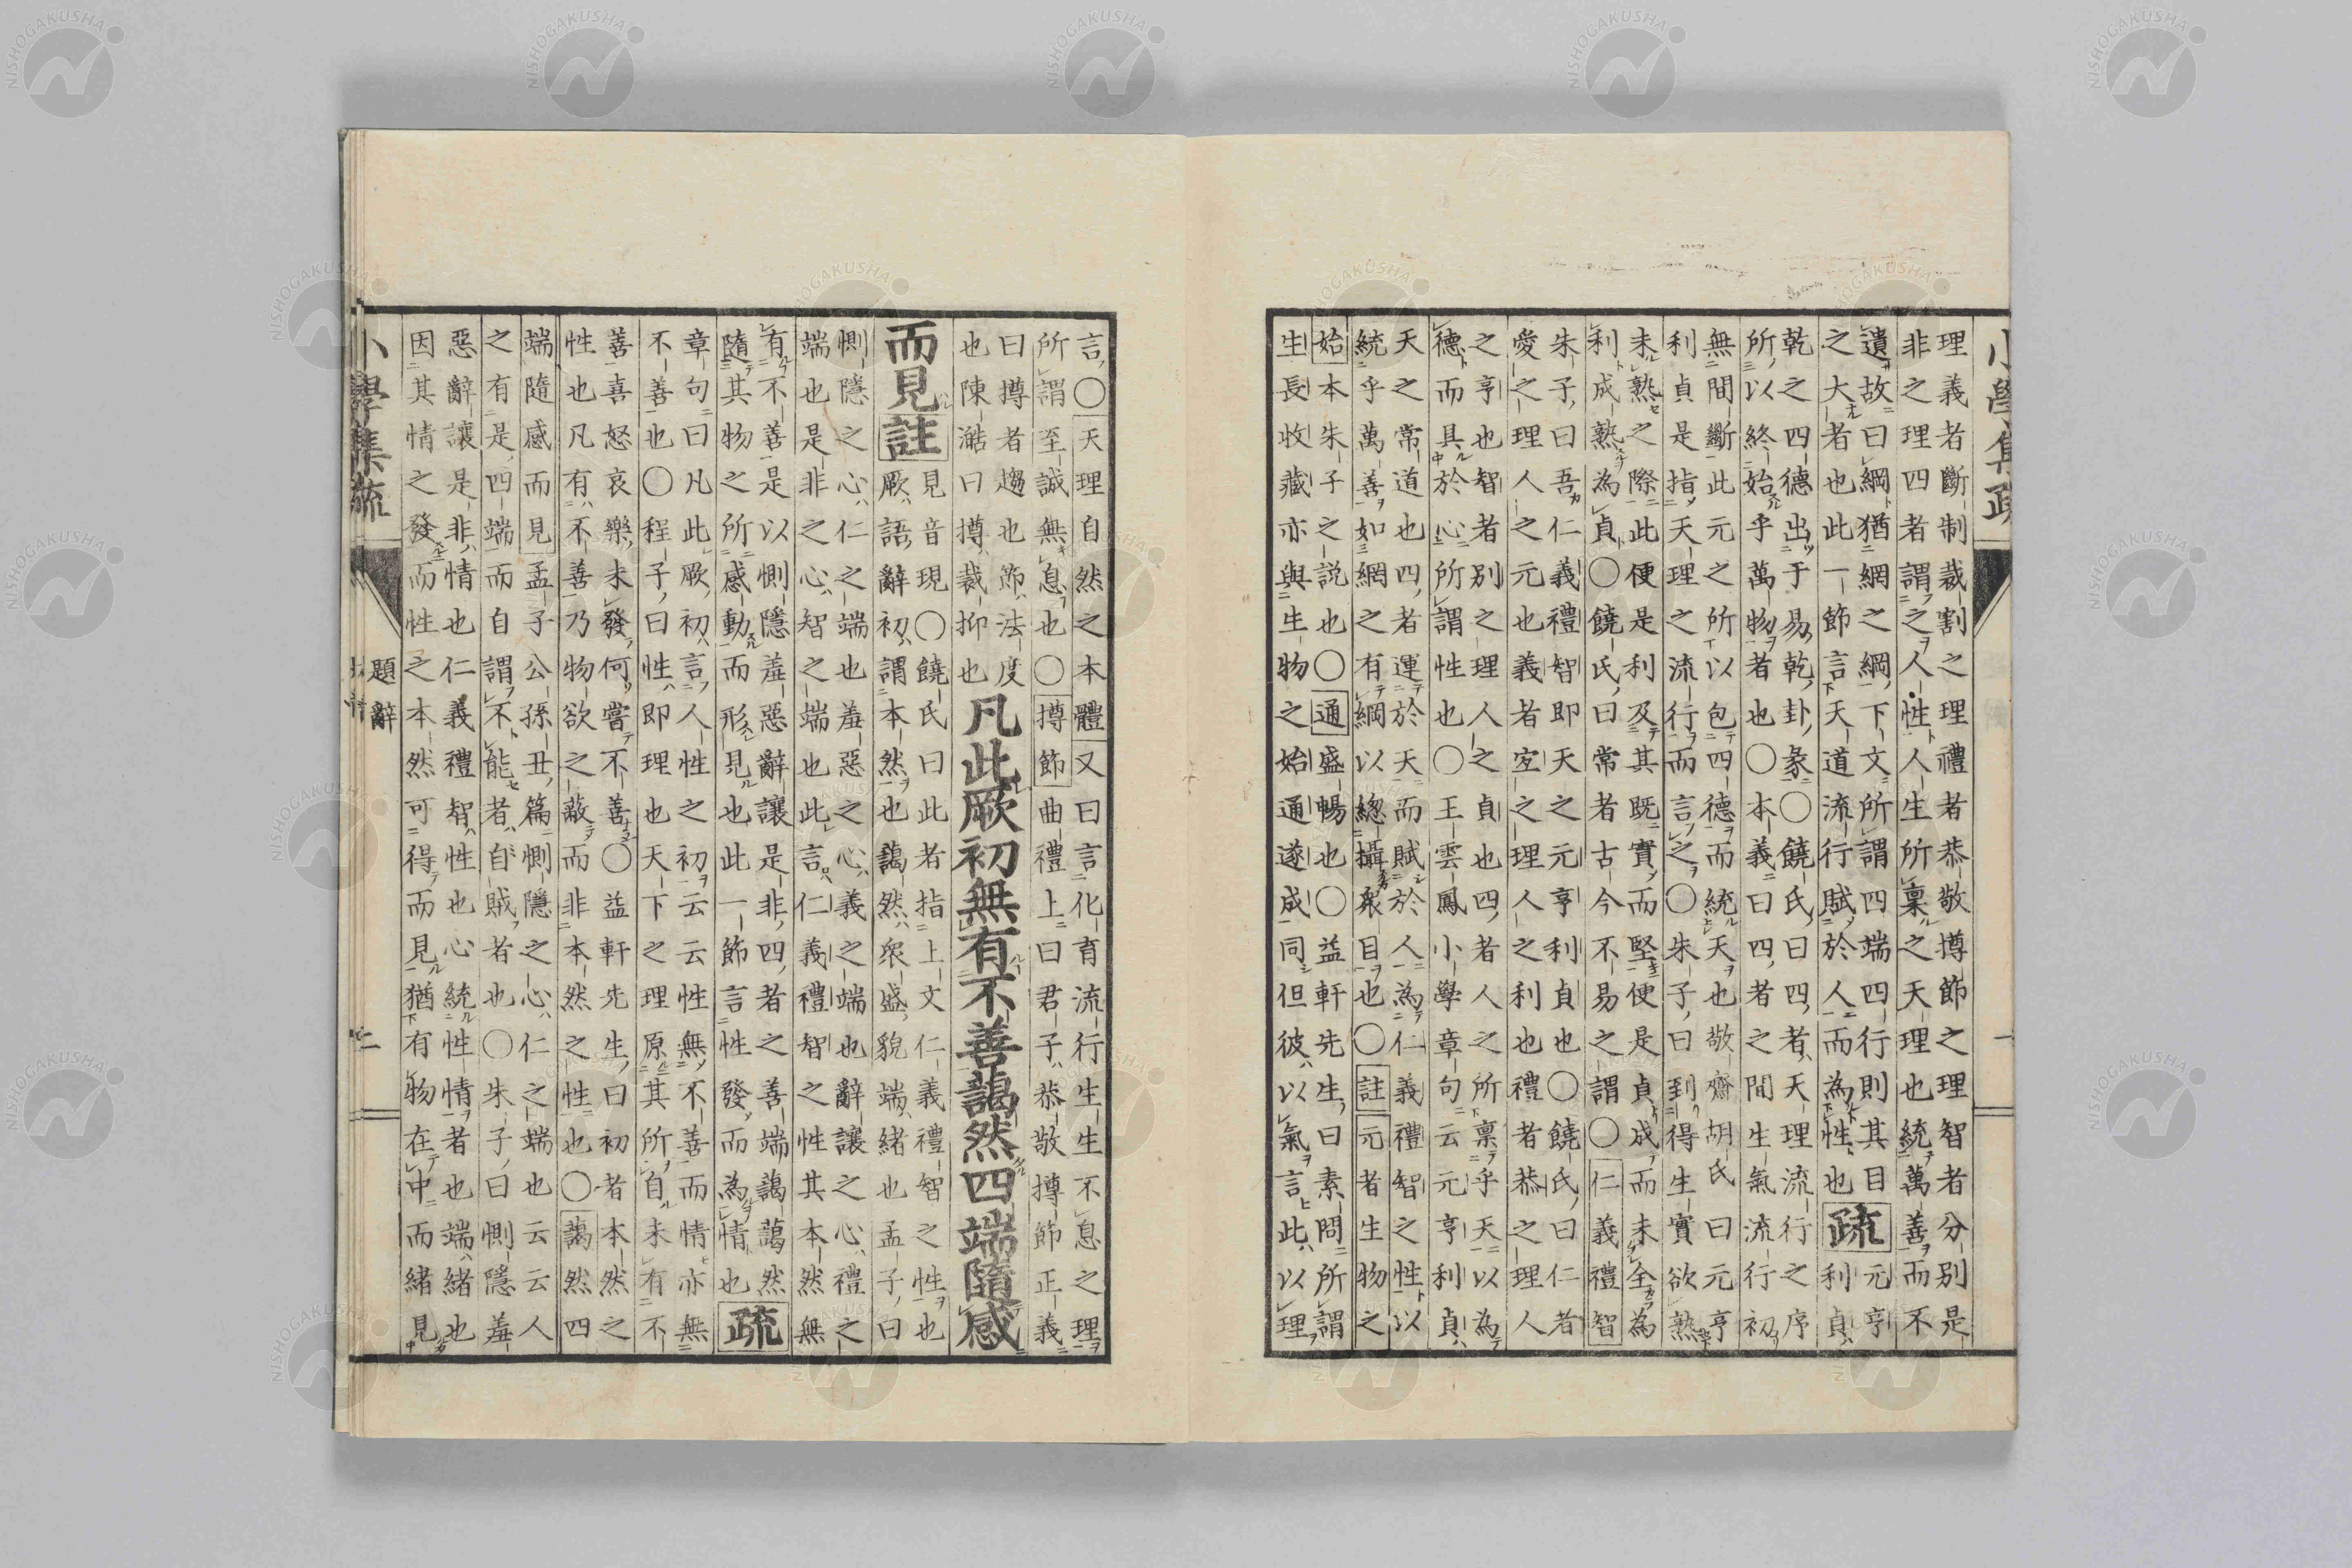 理義者斷制裁割之理禮者恭敬撙節之理智者分別是
非之理四者謂之人性人生所稟之天理也統萬善而不
遺故曰綱猶網之綱下文所謂四端四行則其目
之大者也此一節言天道流行賦於人而為性也
疏
元亨
利貞
乾之四德出于易乾卦彖○饒氏曰四者天理流行之序
所以終始乎萬物者也○本義曰四者之間生氣流行初
無間斷此元之所以包四德而統天也敬齋胡氏曰元亨
利貞是指天理之流行而言之○朱子曰到得生實欲熟
未熟之際此便是利及其既實而堅便是貞成而未全為
利成熟為貞○饒氏曰常者古今不易之謂○仁義禮智
朱子曰吾仁義禮智即天之元亨利貞也○饒氏曰仁者
愛之理人之元也義者宜之理人之利也禮者恭之理人
之亨也智者別之理人之貞也四者人之所稟乎天以為
德而具於心所謂性也○王雲鳳小學章句云元亨利貞
天之常道也四者運於天而賦於人為仁義禮智之性以
統乎萬善如網之有綱以總攝衆目也○註元者生物之
始本朱子之說也○通盛暢也○益軒先生曰素問所謂
生長收藏亦與生物之始通遂成同但彼以氣言此以理
小學集疏
一
言○天理自然之本體又曰言化育流行生生不息之理
所謂至誠無息也○撙節曲禮上曰君子恭敬撙節正義
曰撙者趨也節法度
也陳澔曰撙裁抑也
凡此厥初無有不善藹然四端隨感
而見
註
見音現○饒氏曰此者指上文仁義禮智之性也
厥語辭初謂本然也藹然衆盛貌端緒也孟子曰
惻隱之心仁之端也羞惡之心義之端也辭讓之心禮之
端也是非之心智之端也此言仁義禮智之性其本然無
有不善是以惻隱羞惡辭讓是非四者之善端藹藹然
隨其物之所感動而形見也此一節言性發而為情也
疏
章句曰凡此厥初言人性之初云云性無不善而情亦無
不善也○程子曰性即理也天下之理原其所自未有不
善喜怒哀樂未發何嘗不善○益軒先生曰初者本然之
性也凡有不善乃物欲之蔽而非本然之性也○藹然四
端隨感而見孟子公孫丑篇惻隱之心仁之端也云云人
之有是四端而自謂不能者自賊者也○朱子曰惻隱羞
惡辭讓是非情也仁義禮智性也心統性情者也端緒也
因其情之發而性之本然可得而見猶有物在中而緒見
小學集疏
題辭
二